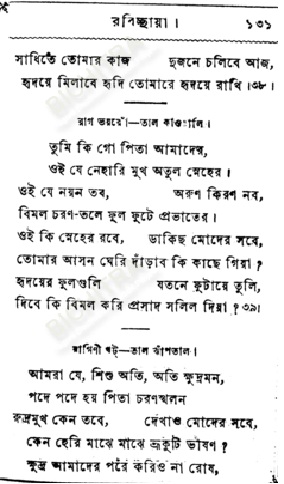 রবিচ্ছায়া। ১৩১
সাধিতে তোমার কাজ দুজনে চলিবে আজ,
হৃদয়ে মিলাবে হৃদি তোমারে হৃদয়ে রাখি।৩৮।
রাগ ভয়রোঁ।—তাল কাওয়ালি।
তুমি কি গো পিতা আমাদের,
ওই যে নেহারি মুখ অতুল স্নেহের।
ওই যে নয়ন তব, অরুণ কিরণ নব,
বিমল চরণ-তলে ফুল ফুটে প্রভাতের।
ওই কি স্নেহের রবে, ডাকিছ মোদের সবে,
তোমার আসন ঘেরি দাঁড়াব কি কাছে গিয়া?
হৃদয়ের ফুলগুলি যতনে ফুটায়ে তুলি,
দিবে কি বিমল করি প্রসাদ সলিল দিয়া?।৩৯।
রাগিণী খট্—তাল ঝাঁপতাল।
আমরা যে, শিশু অতি, অতি ক্ষুদ্রমন,
পদে পদে হয় পিতা চরণস্খলন
রুদ্রমুখ কেন তবে, দেখাও মোদের সবে,
কেন হেরি মাঝে মাঝে ভ্রূকুটি ভীষণ?
ক্ষুদ্র আমাদের পরে করিও না রোষ,